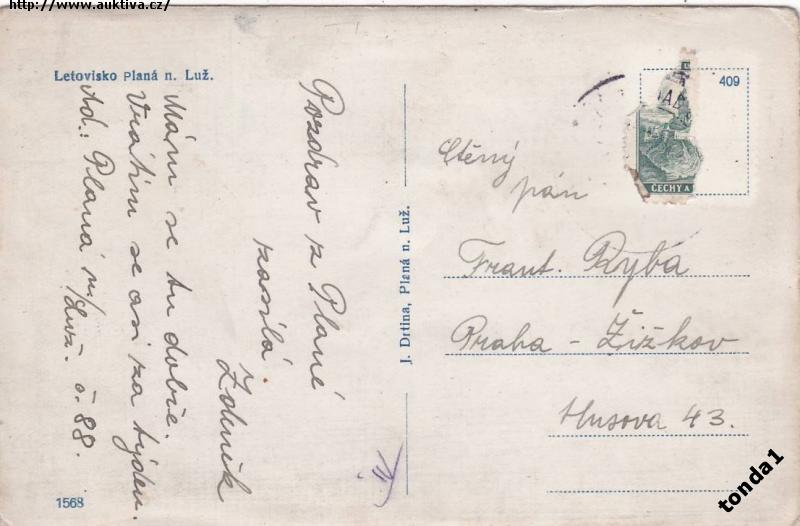 http://www.auktiva.cz/
Letovisko Planá n. Luž.
Pozdrav z Plané
zasílá
Zdeněk
Mám se tu dobře.
Vrátím se asi za týden.
Ad.: Planá n./Luž. č. 88.
1568
J. Drtina, Planá n. Luž.
409
ČECHY A
Ctěný
pán
Frant. Ryba
Praha - Žižkov
Husova 43.
tonda1